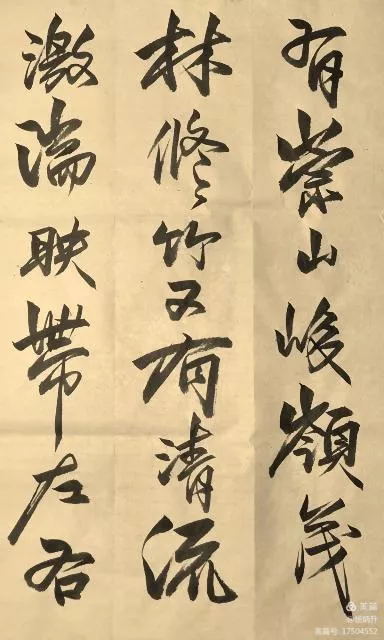 有崇山峻嶺茂
林修竹又有清流
激湍映帶左右
美篇
美篇号: 17504552